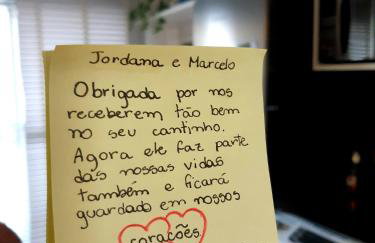 Jordana e Marcelo
Obrigada por nos
receberem tão bem
no seu cantinho.
Agora ele faz parte
das nossas vidas
também e ficará
guardado em nossos
corações